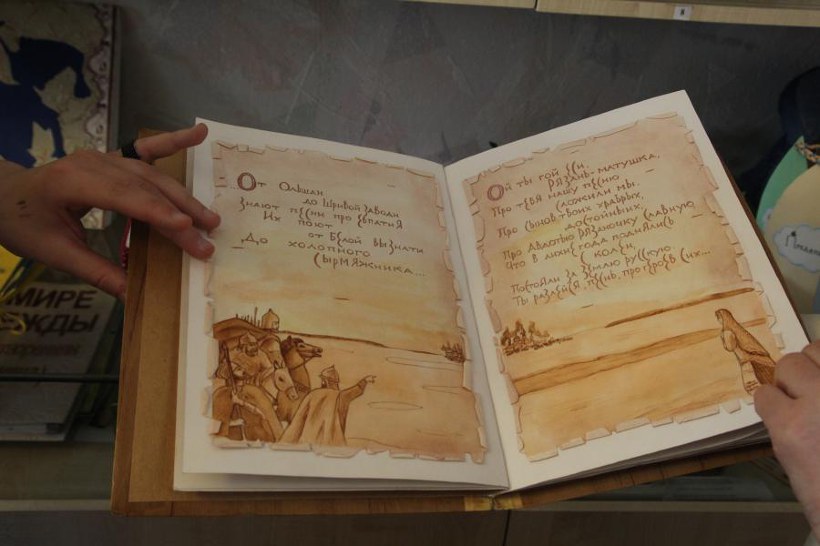 От Ольшан
до Швивой Заводи
Знают песни про Евпатия
Их поют
от Белой вызнати
До холопного
Сырмяжника...
Ой ты гой еси,
Рязань-матушка,
Про тебя нашу песню
сложили мы.
Про сынов твоих храбрых,
достойных,
Про Авдотью Рязаночку славную
Что в лихие года поднялись
с колен,
Постояли за землю русскую.
Ты разлейся, песнь, про героев сих...
МИРЕ
ЕЖДЫ